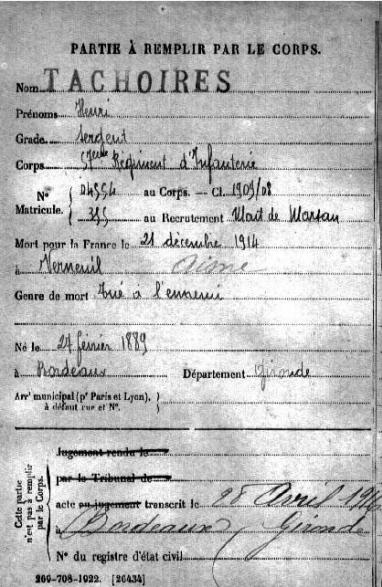 PARTIE À REMPLIR PAR LE CORPS.
Nom TACHOIRES
Prénoms Henri
Grade Sergent
Corps 57ème Régiment d'Infanterie
N° Matricule. { 04554 au Corps. — Cl. 1909/08
au Recrutement Mont de Marsan
Mort pour la France le 21 décembre 1914
à Verneuil Aisne
Genre de mort Tué à l'ennemi
Né le 27 février 1889
à Bordeaux Département Gironde
Arrt municipal (pr Paris et Lyon), }
à défaut rue et N°.
Cette partie n'est pas à remplir par le Corps.
Jugement rendu le
par le Tribunal de
acte ou jugement transcrit le 28 Avril
à Bordeaux Gironde
N° du registre d'état civil
269-708-1922. [26434]